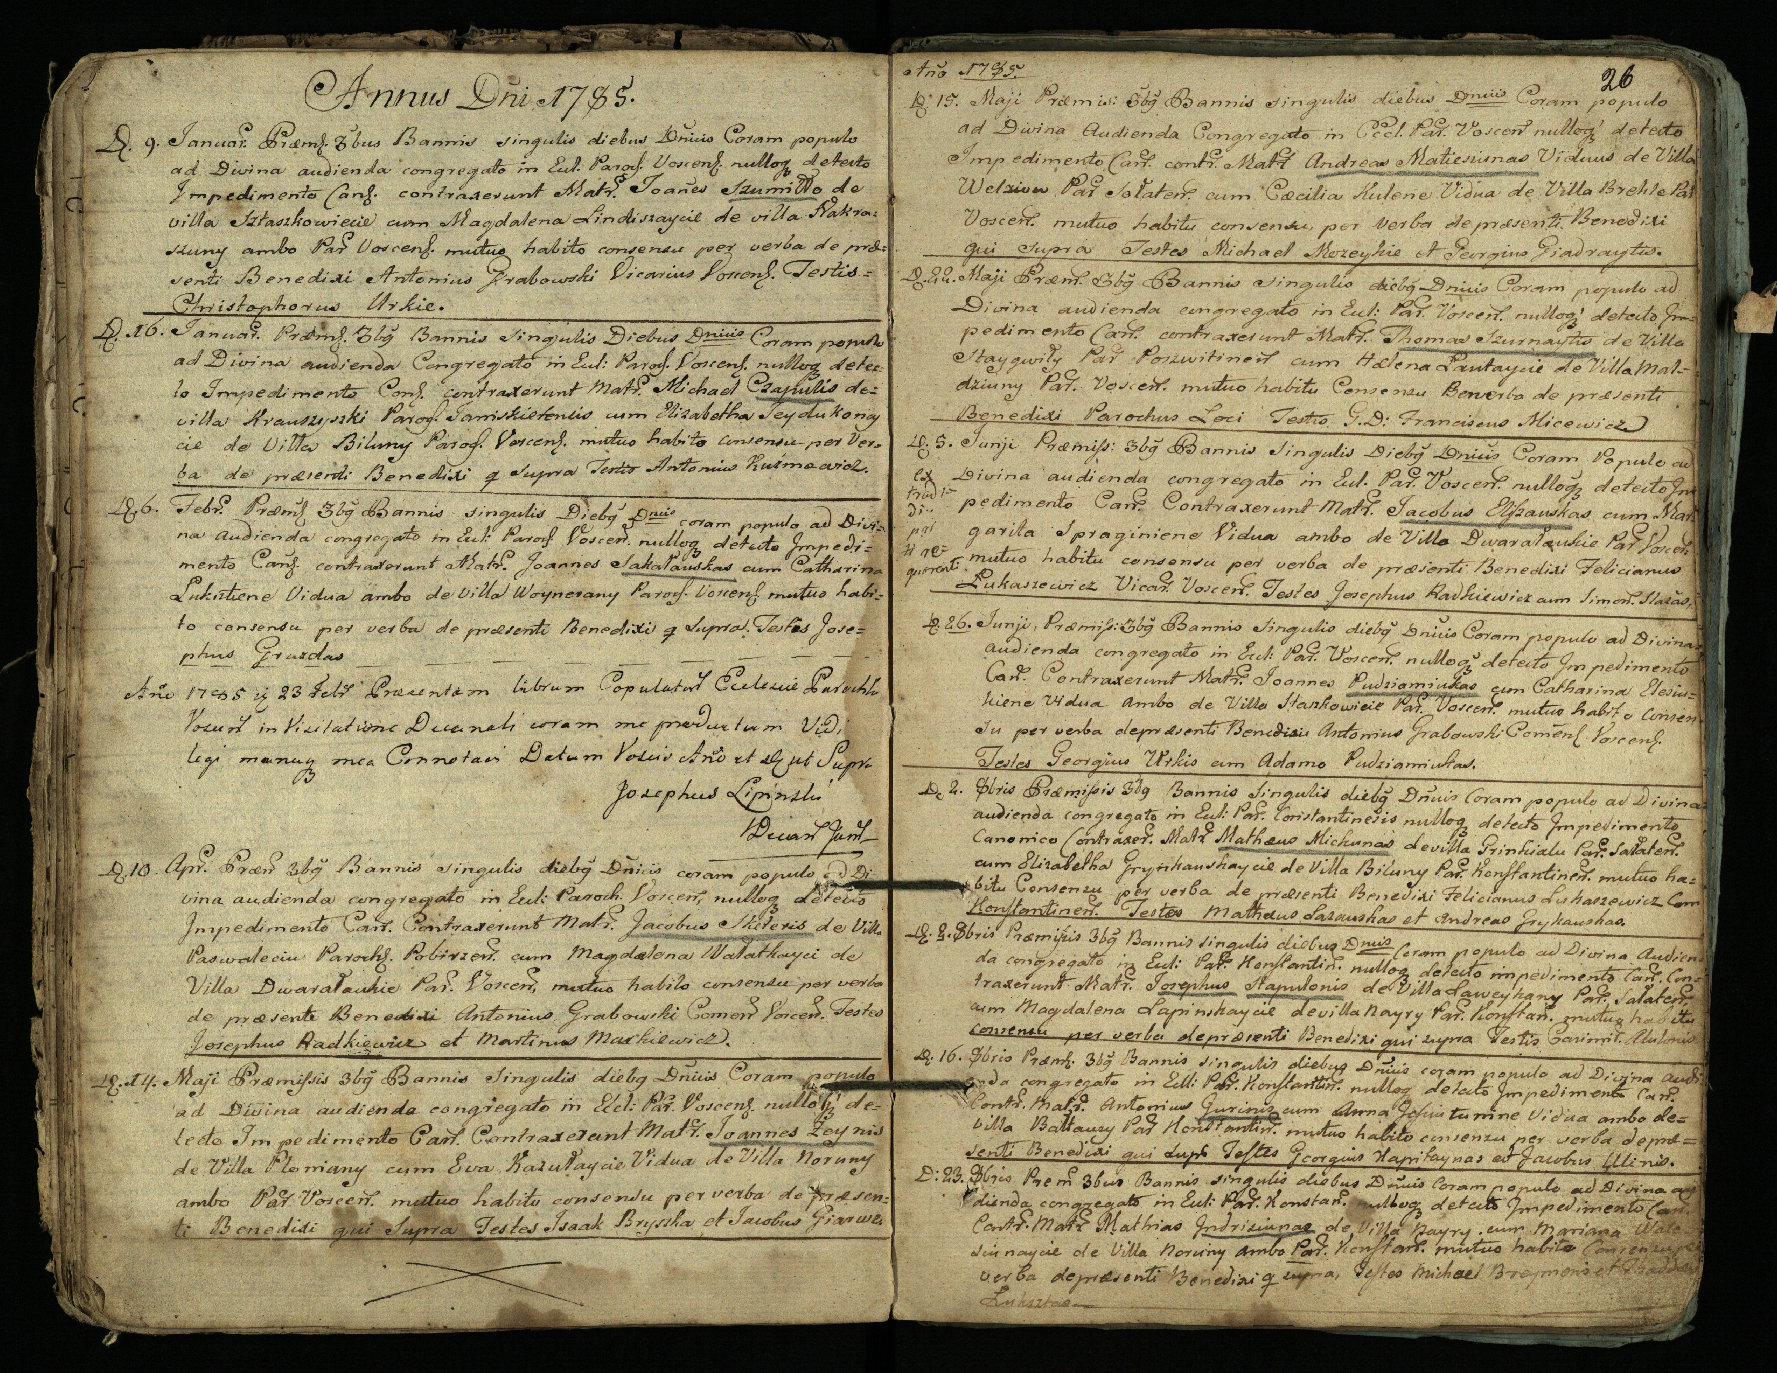 Annus Dñi 1785.
D. 9. Januar. Præms. 3bus Bannis singulis diebus Dñicis Coram populo
ad Divina audienda congregato in Ecl. Paroch. Voscens. nulloq detecto
Impedimento Cans. contraxerunt Matr. Joañes Szumiłło de
villa Staszkowiecie cum Magdalena Lindiszaycie de villa Nakra=
szuny ambo Par Voscens. mutuo habito consensu per verba de præ=
senti Benedixi Antonius Grabowski Vicarius Voscens. Testis=
Christophorus Urkie.
D. 16. Januar. Præms. 3bq Bannis Singulis Diebus Dnicis Coram populo
ad Divina audienda Congregato in Ecl: Paroch. Voscens. nulloq detec=
to Impedimento Cans. contraxerunt Matr. Michael Czapulis de=
villa Krauszyszki Paroch. Janiskielensis cum Elizabetha Seydukonay
cie de Villa Biluny Paroch. Voscens. mutuo habito consensu per ver=
ba de præsenti Benedixi q Supra Testis Antonius Kuźmowicz.
D. 6. Febr. Præms. 3bq Bannis singulis Diebq Dnicis coram populo ad Divi=
na audienda congregato in Ecl: Paroch Voscen. nulloq detecto Impedi=
mento Cans. contraxerunt Matr. Joannes Sakałauskas cum Catharina
Lukrtiene Vidua ambo de Villa Woynerany Paroch. Voscens mutuo habi=
to consensu per verba de præsenti Benedixi q Supra. Testes Jose=
phus Gruzdas
Año 1785 23 Febr Præsentem librum Copulator Ecclesiæ Parochls
Voscen in Visitatione Decanali coram me productum Vidi,
legi manuq mea Connotavi Datum Vosciis Año et D ut Supra
Josephus Lipinski
Decan
D. 10 Apr. Præm 3bq Bannis singulis diebq Dñicis coram populo ad Di
vina audienda congregato in Ecl: Paroch. Voscen. nulloq detecto
Impedimento Can. Contraxerunt Matr. Jacobus Skieteris de Villa
Paswaleciu Parochs. Pobirzen. cum Magdalena Wałatkayci de
Villa Dwarałaukie Par. Voscen. mutuo habito consensu per verba
de præsenti Benedixi Antonius Grabowski Comen Voscen. Testes
Josephus Radkiewicz et Martinus Markiewicz.
D. 14. Maji Præmissis 3bq Bannis Singulis diebq Dñicis Coram populo
ad Divina audienda congregato in Ecl: Par. Voscens nulloq de=
tecto Impedimento Can. Contraxerunt Matr. Joannes Zeynis
de Villa Pleniany cum Eva Kazułaycie Vidua de Villa Noruny
ambo Par. Voscen. mutuo habito consensu per verba de præsen=
ti Benedixi qui Supra Testes Isaak Bryszka et Jacobus
Año 1785.
26
D. 15. Maji Præmis: 3bq Bannis singulis diebus Dnicis Coram populo
ad Divina Audienda Congregato in Eccl. Par. Voscen nulloq detecto
Impedimento Can. contr. Matr Andreas Matieszunas Viduus de Villa
Welziou Par Sałaten. cum Cæcilia Kulene Vidua de Villa Brekle Par
Voscen. mutuo habitu consensu, per verba de præsenti Benedixi
qui supra Testes Michael Mozeykie et Georgius Giadraytis.
D. 22. Maji Præm. 3bq Bannis singulis diebq Dnicis Coram populo ad
Divina audienda congregato in Ecl: Par. Voscen. nulloq detecto Im=
pedimento Can. contraxerunt Matr. Thomas Szurnaytis de Villa
Staygwiły Par Poszwitinen cum Hælena Lautaycie de Villa Mal=
dziuny Par. Voscen. mutuo habitu Consensu per verba de præsenti
Benedixi Parochus Loci Testis G.D: Franciscus Micewicz
D. 5. Junji Præmiss: 3bq Bannis Singulis Diebq Dnicis Coram Populo ad
Divina audienda congregato in Ecl. Par. Voscen. nulloq detecto Im
pedimento Can. Contraxerunt Matr. Jacobus Elszauskas cum Mar=
garita Spraginiene Vidua ambo de Villa Dwarałaukie Par Voscen
mutuo habitu consensu per verba de præsenti Benedixi Felicianus
Lukaszewicz Vicar. Voscen. Testes Josephus Radkiewicz cum Simon.
D. 26. Junji. Præmiss: 3bq Bannis singulis diebq Dnicis Coram populo ad Divina
audienda congregato in Ecl: Par. Voscen. nulloq detecto Impedimento
Can. Contraxerunt Matr. Joannes Pudziamiukas cum Catharina Elesius=
kiene Vidua Ambo de Villa Staszkowicie Par. Voscen. mutuo habito Consen
su per verba depræsenti Benedixi Antonius Grabowski Comens Voscens.
Testes Georgius Urkis cum Adamo Pudziamiukas.
D. 2. 8bris Præmissis 3bq Bannis Singulis diebq Dñicis Coram populo ad Divina
audienda congregato in Ecl: Par. Constantinesis nulloq detecto Impedimento
Canonico Contraxer. Matr Mathæus Michunas de villa Grinkialu Par. Sałaten.
cum Elizabetha Grynkauskaycie de Villa Biluny Par. Konstantinen. mutuo ha=
bitu Consensu per verba de præsenti Benedixi Felicianus Lukaszewicz Com
Konstantinen. Testes Mathæus Lazauskas et Andreas Grykauskas.
D. 2. 8bris Præmissis 3bq Bannis singulis diebus Dnicis Coram populo ad Divina Audien=
da congregato in Ecl: Par. Konstantin. nulloq detecto impedimento Can. Con=
traxerunt Matr. Josephus Stapulonis de Villa Laweykany Par. Sałaten.
cum Magdalena Lapinskaycie de villa Nayry Par. Konstan. mutuo habitu
consensu per verba depræsenti Benedixi qui supra Testis Casimir.
D. 16. 8bris Præms. 3bq Bannis singulis diebus Dñicis coram populo ad Divina audi
enda congregato in Ecl: Par. Konstantin. nulloq detecto Impedimento Can.
Contr. Matr. Antonius Gurinis cum Anna Jesuitumne Vidua ambo de=
villa Bałtauzy Par Konstantin. mutuo habito consensu per verba depræ=
senti Benedixi qui supr Testes Georgius Kapitaynas et Jacobus Ulinis.
D. 23. 8bris Præm 3bus Bannis singulis diebus Dñicis Coram populo ad Divina au
dienda congregato in Ecl: Par. Konstan. nulloq detecto Impedimento Can.
Contr. Matr Mathias Indrisiunas de Villa Nayry. cum Mariana
siunaycie de Villa Noruny ambo Par. Konstan. mutuo habito Consensu per
verba depræsenti Benedixi q supra, Testes Michael Breymeris et
Luksztas